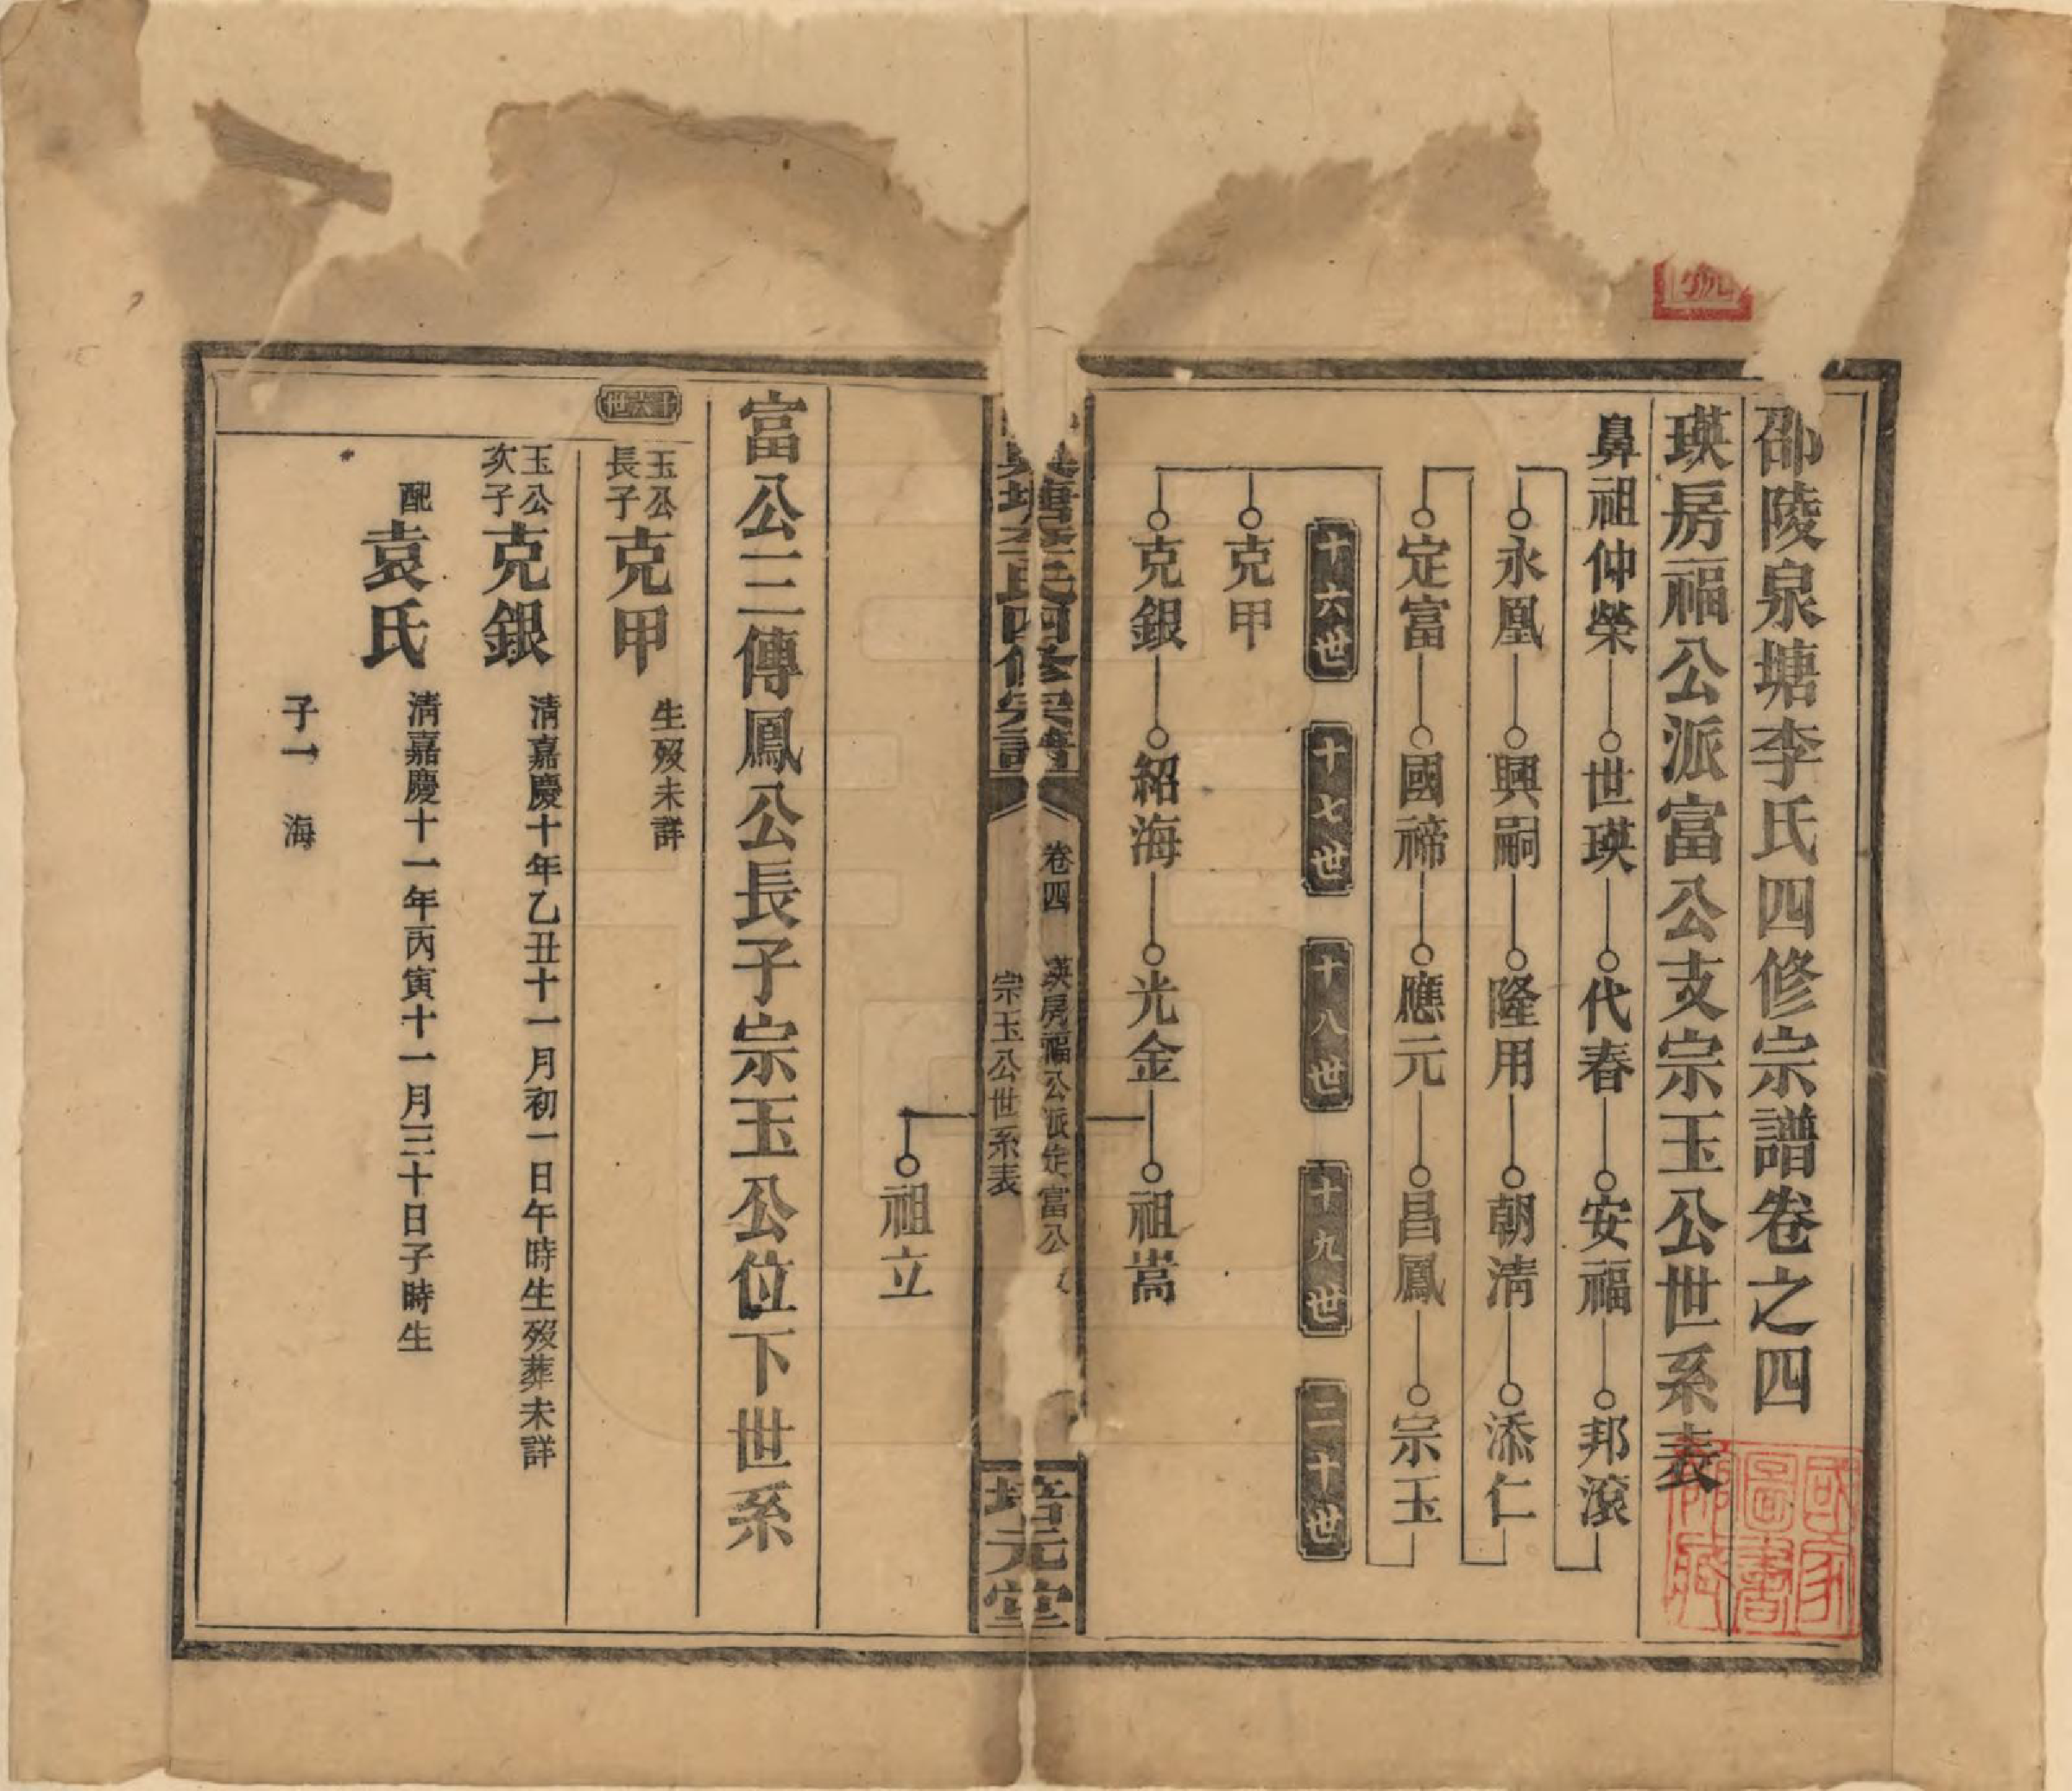 邵陵泉塘李氏四修宗譜卷之四
瑛房福公派富公支宗玉公世系表
鼻祖仲榮 世瑛 代春 安福 邦滾
永凰 興嗣 隆用 朝清 添仁
定富 國禘 應元 昌鳳 宗玉
十六世 十七世 十八世 十九世 二十世
克甲
克銀 紹海 光金 祖嵩
泉塘李氏四修宗譜
卷四 瑛房福公派定富公
宗玉公世系表
培元堂
祖立
富公三傳鳳公長子宗玉公位下世系
十六世
玉公長子克甲 生歿未詳
玉公次子克銀 清嘉慶十年乙丑十一月初一日午時生歿葬未詳
配袁氏 清嘉慶十一年丙寅十一月三十日子時生
子一 海
國家圖書館藏